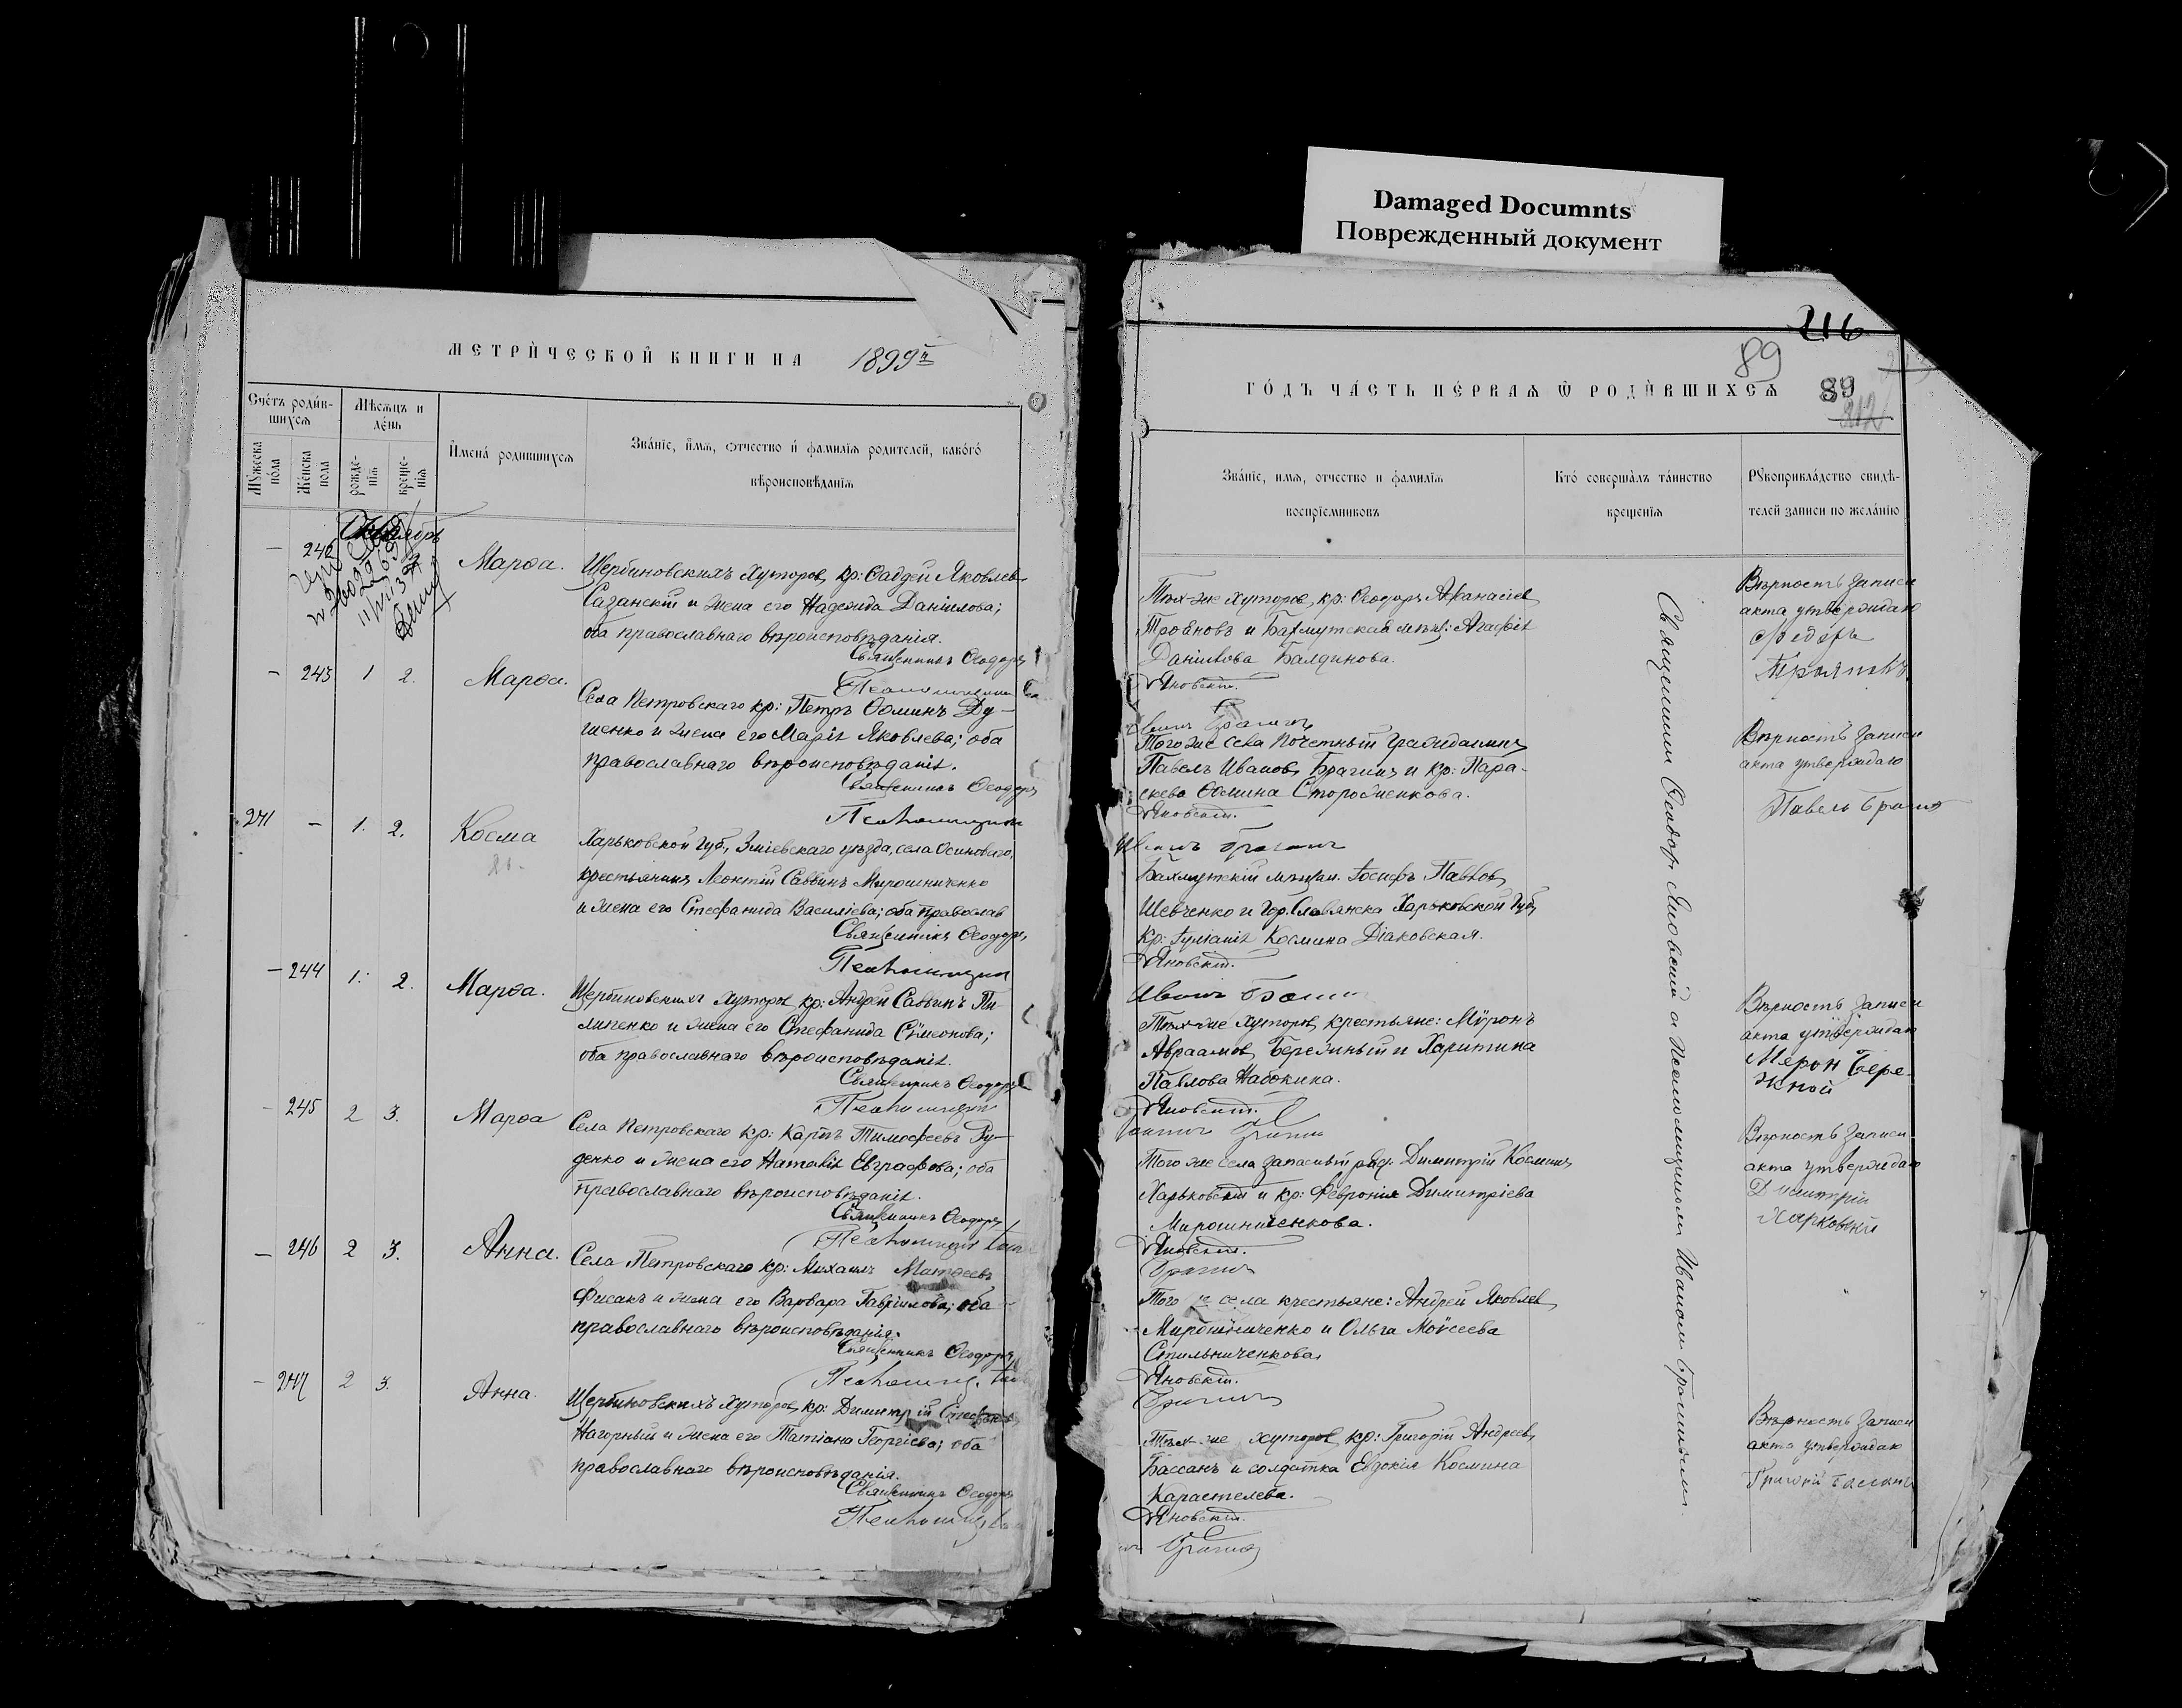 Damaged Documnts
Поврежденный документ
МЕТРИ́ЧЕСКОЙ КНИГИ НА 1899й
Сче́тъ роди́в-
шихсѧ
Мѣсѧцъ и
де́нь
Мꙋ́жеска
по́ла
Же́нска
пола
рожде-
нїѧ
креще-
нїѧ
И҆мена́ роди́вшихсѧ
Зва́нїе, и҆́мѧ, о҆тчество и҆ фами́лїѧ роди́телей, како́гѡ
вѣроисповѣ́данїѧ
Октябрь
— 242
Марѳа.
Щербиновскихъ хуторовъ, кр: Ѳаддей Яковлевъ
Сазанскій и жена его Надежда Даніилова;
оба православнаго вѣроисповѣданія.
Священникъ Ѳеодоръ
— 243 1 2. Марѳа.
Села Петровскаго кр: Петръ Ѳоминъ Ду-
шенко и жена его Марія Яковлева; оба
православнаго вѣроисповѣданія.
Священникъ Ѳеодоръ
241 — 1. 2. Косма
Харьковской губ, Зміевскаго уѣзда, села Осиноваго,
крестьянинъ Леонтій Саввинъ Мирошниченко
и жена его Стефанида Василіева; оба православ
Священникъ Ѳеодоръ
— 244 1. 2. Марѳа.
Щербиновскихъ хуторовъ кр: Андрей Саввинъ Пи
липенко и жена его Стефанида Сѵмеонова;
оба православнаго вѣроисповѣданія.
Священникъ Ѳеодоръ
— 245 2 3. Марѳа
Села Петровскаго кр: Карпъ Тимофеевъ Ру-
денко и жена его Наталія Евграфова; оба
православнаго вѣроисповѣданія.
Священникъ Ѳеодоръ
— 246 2 3. Анна.
Села Петровскаго кр: Михаилъ Матѳеевъ
Фисакъ и жена его Варвара Гавріилова; оба
православнаго вѣроисповѣданія.
Священникъ Ѳеодоръ
— 247 2 3. Анна.
Щербиновскихъ хуторовъ, кр: Димитрій Стефановъ
Нагорный и жена его Татіана Георгіева; оба
православнаго вѣроисповѣданія.
Священникъ Ѳеодоръ
216
89
ГО́ДЪ ЧА́СТЬ ПЕ́РВАѦ Ѿ РОДИ́ВШИХСѦ 89
212
Зва́нїе, имѧ, отчество и фами́лїѧ
воспрїе́мниковъ
Кто́ соверша́лъ та́инство
креще́нїѧ
Рꙋкоприкла́дство свидѣ́-
телей записи по жела́нїю
Тѣхъ-же хуторовъ, кр: Ѳеодоръ Аѳанасіевъ
Трояновъ и Бахмутская мѣщ: Агафія
Даніилова Балдинова.
Яновскій.
Вѣрность записи
акта утверждаю
Федоръ
Трояновъ
Того же села Почетный гражданинъ
Павелъ Ивановъ Брагинъ и кр: Пара-
скева Ѳомина Стороженкова.
Яновскій.
Вѣрность записи
акта утверждаю
Павелъ Брагинъ
Бахмутскій мѣщан. Іосифъ Павловъ
Шевченко и гор. Славянска Харьковской губ
кр: Іуліанія Космина Діаковская.
Яновскій.
Тѣхъ-же хуторовъ, крестьяне: Мѵронъ
Авраамовъ Бережный и Харитина
Павлова Набокина.
Яновскій.
Вѣрность записи
акта утверждаю
Мерон Бере-
жной
Того же села запасный ряд. Димитрій Косминъ
Харьковскій и кр: Февронія Димитріева
Мирошниченкова.
Яновскій.
Брагинъ
Вѣрность записи
акта утверждаю
Дмитрій
Харковскій
Того же села крестьяне: Андрей Яковлевъ
Мирошниченко и Ольга Моѵсеева
Стильниченкова.
Яновскій.
Брагинъ
Тѣхъ-же хуторовъ, кр: Григорій Андреевъ
Бассанъ и солдатка Евдокія Космина
Карастелева.
Яновскій.
Брагинъ
Вѣрность записи
акта утверждаю
Григорій Басанъ
Священникъ Ѳеодоръ Яновскій с Псаломщикомъ Иваномъ Брагинымъ.